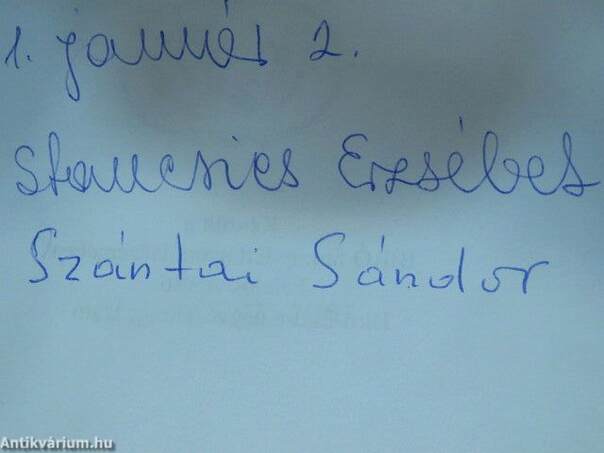 1. január 2.
Stancsics Erzsébet
Szántai Sándor
Antikvárium.hu